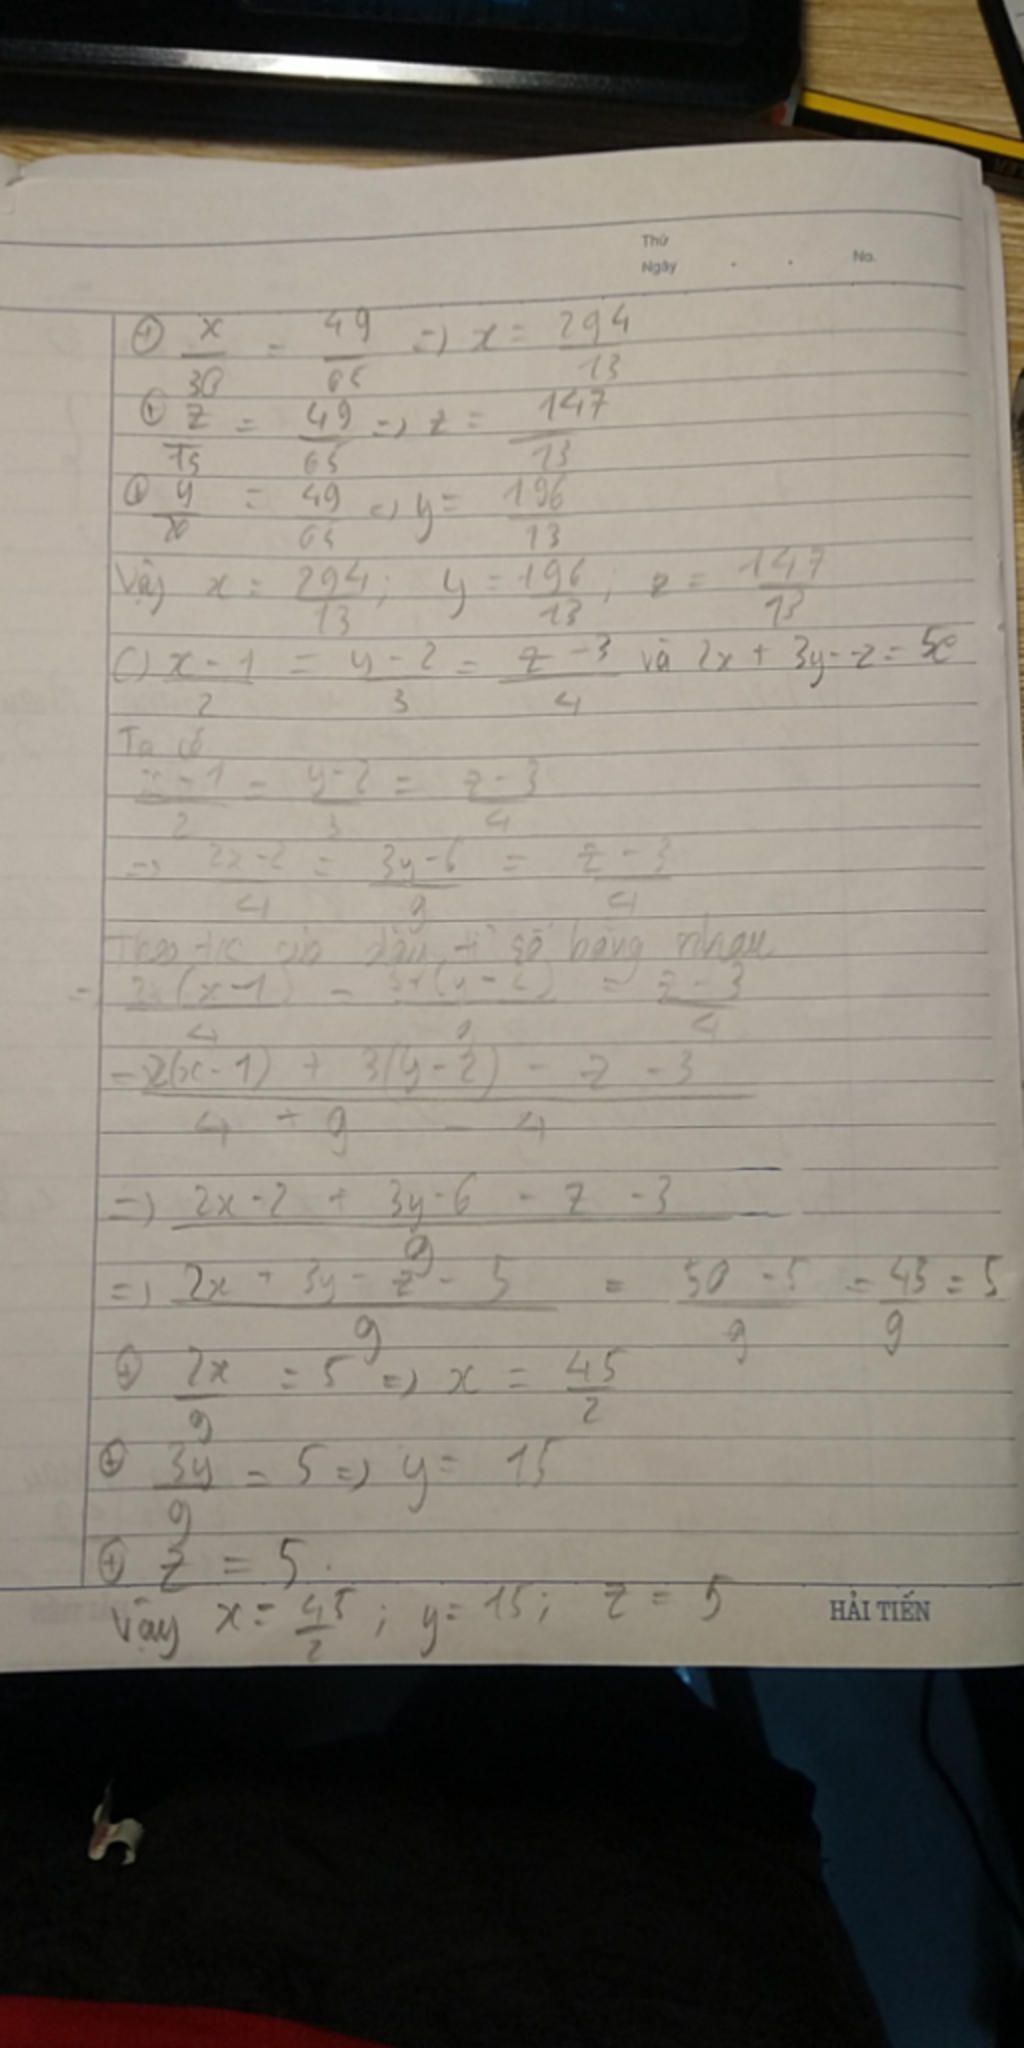 Thứ
Ngày . . No.
⊕ x/30 = 49/65 => x = 294/13
⊕ z/15 = 49/65 => z = 147/13
⊕ y/20 = 49/65 => y = 196/13
Vậy x = 294/13; y = 196/13; z = 147/13
C) x-1/2 = y-2/3 = z-3/4 và 2x + 3y - z = 50
Ta có
x-1/2 = y-2/3 = z-3/4
=> 2x-2/4 = 3y-6/9 = z-3/4
Theo t/c của dãy tỉ số bằng nhau
(x-1)/4 = (y-2)/9 = z-3/4
= 2(x-1) + 3(y-2) - z - 3/4 + 9 - 4
=> 2x-2 + 3y-6 - z - 3/9
=> 2x + 3y - z - 5/9 = 50 - 5/9 = 45/9 = 5
⊕ 2x/9 = 5 => x = 45/2
⊕ 3y/9 = 5 => y = 15
⊕ z = 5.
Vậy x = 45/2; y = 15; z = 5
HẢI TIẾN